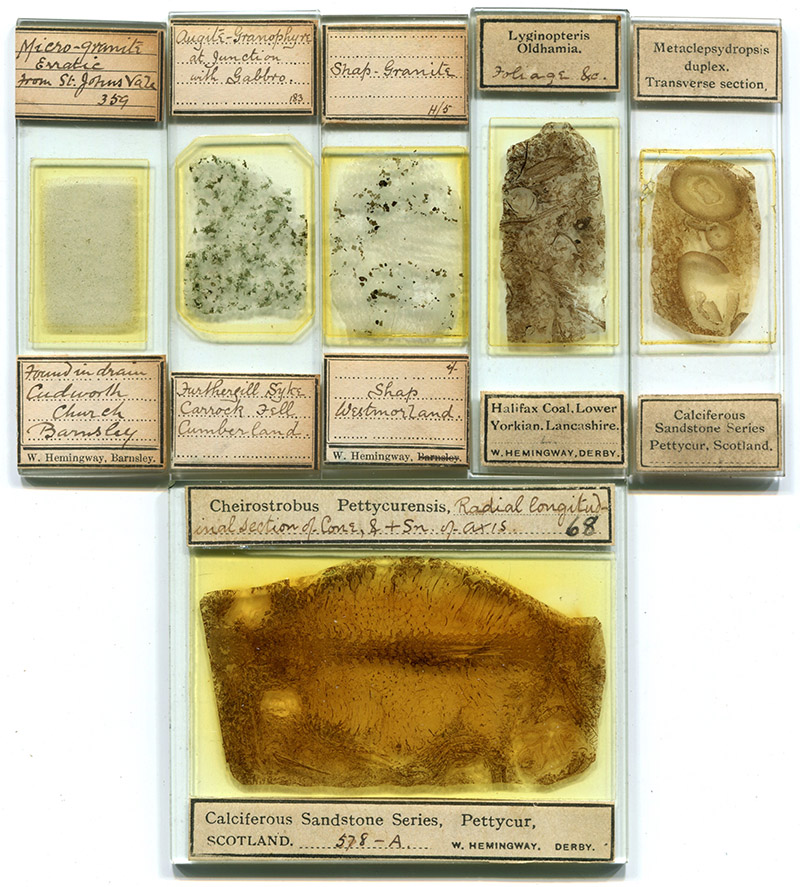 Micro-granite
Erratic
from St. Johns Vale
359
Found in drain
Cudworth
Church
Barnsley
W. Hemingway, Barnsley.
Augite-Granophyre
at Junction
with Gabbro.
183
Furthergill Syke
Carrock Fell
Cumberland.
Shap-Granite
H/5
4.
Shap
Westmorland
W. Hemingway, Barnsley.
Lyginopteris
Oldhamia.
Foliage &c.
Halifax Coal, Lower
Yorkian, Lancashire.
W. HEMINGWAY, DERBY.
Metaclepsydropsis
duplex.
Transverse section,
Calciferous
Sandstone Series
Pettycur, Scotland.
Cheirostrobus Pettycurensis, Radial longitud-
inal section of Cone, & + Sn. of axis. 68
Calciferous Sandstone Series, Pettycur,
SCOTLAND. 578-A. W. HEMINGWAY. DERBY.